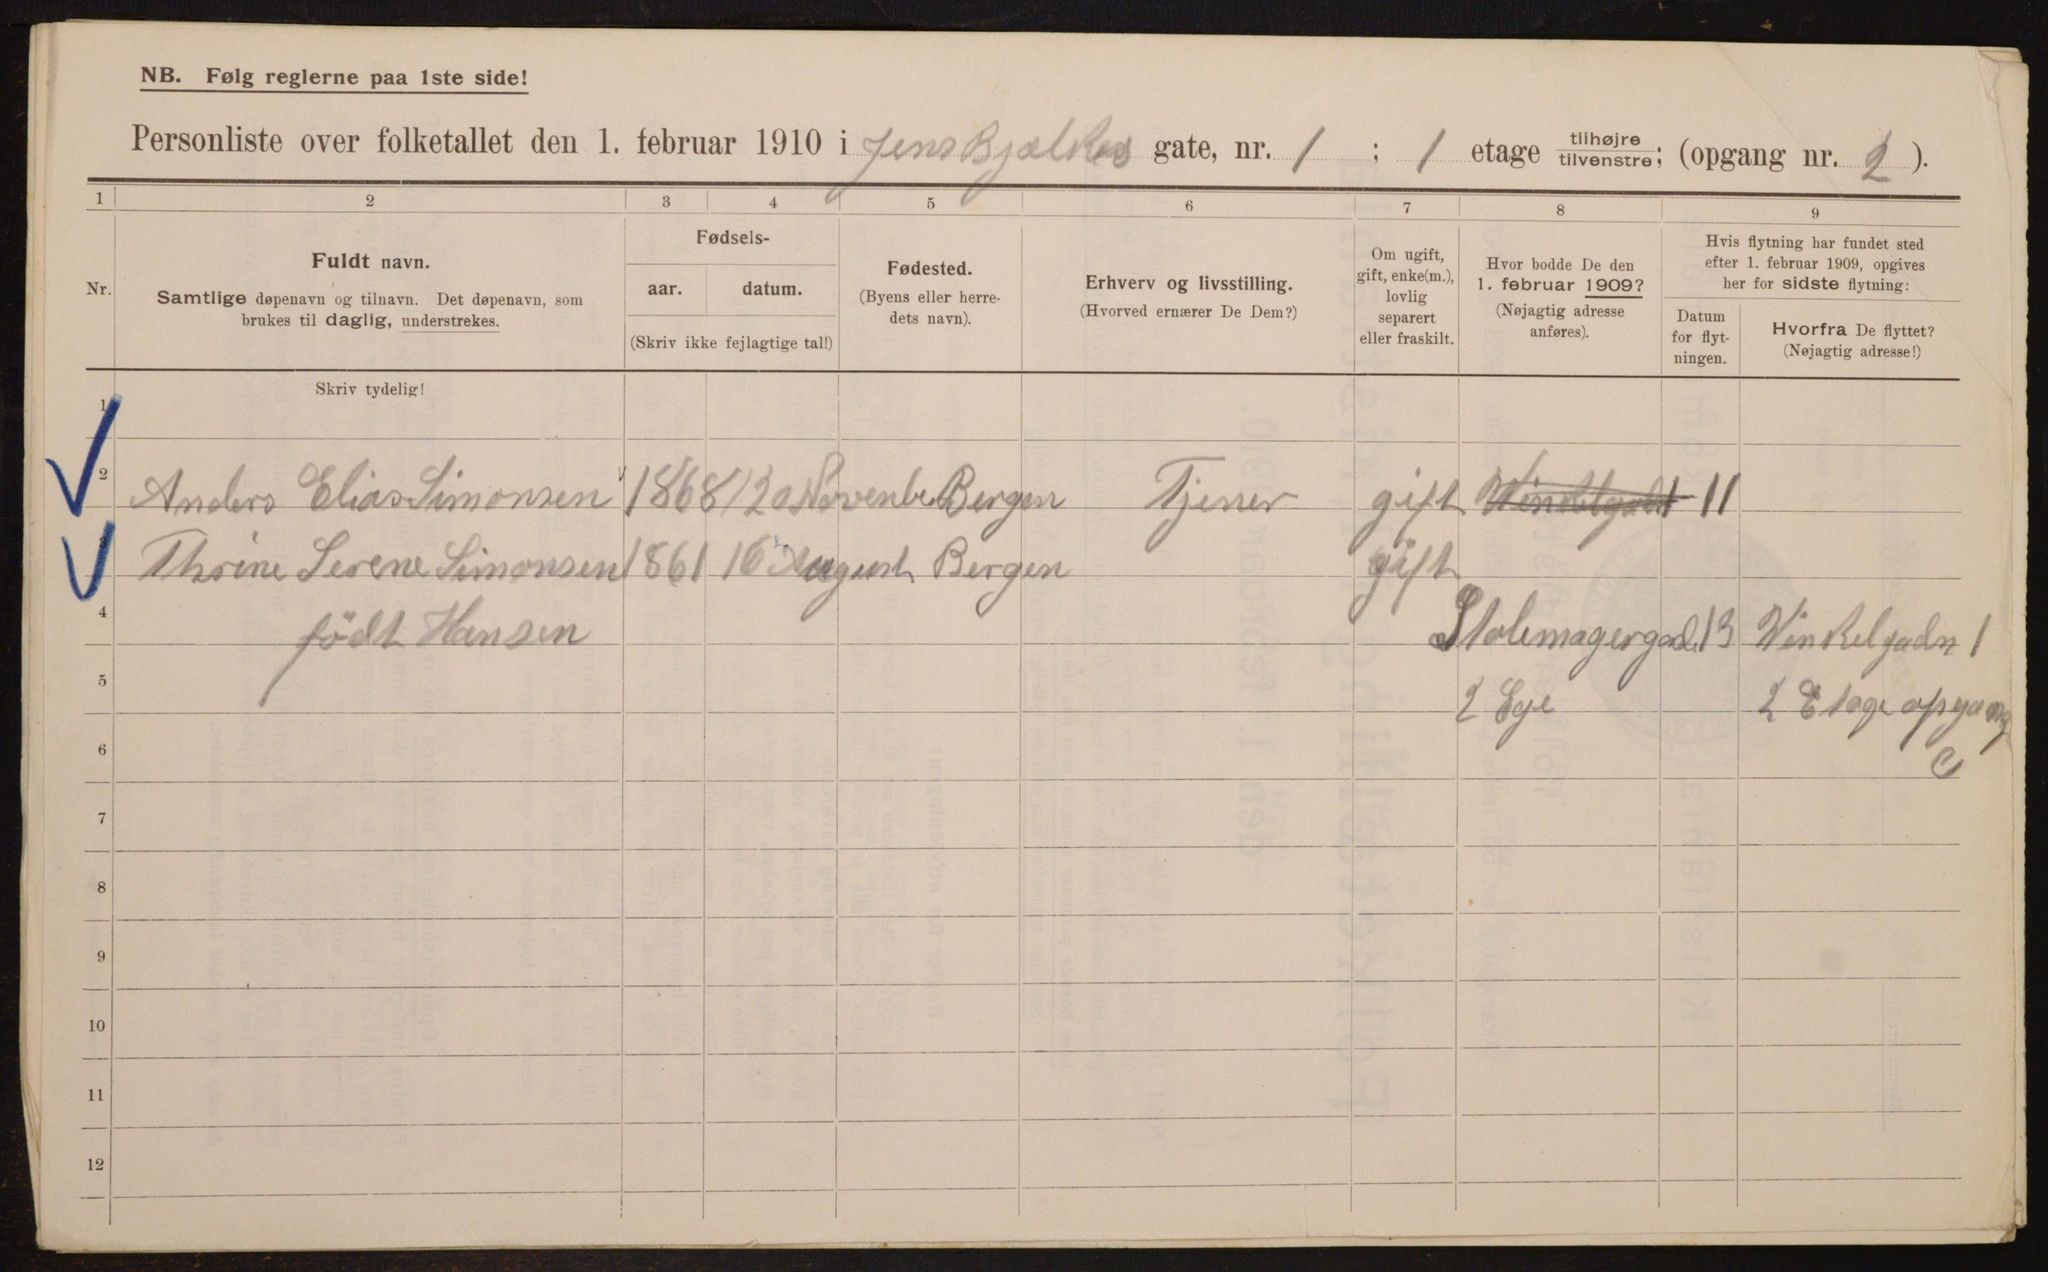 NB. Følg reglerne paa 1ste side!
Personliste over folketallet den 1. februar 1910 i Jens Bjelkes gate, nr. 1 ; 1 etage tilhøjre tilvenstre; (opgang nr. 2 ).
1 2 3 4 5 6 7 8 9
Nr.
Fuldt navn.
Samtlige døpenavn og tilnavn. Det døpenavn, som
brukes til daglig, understrekes.
Fødsels-
aar. datum.
(Skriv ikke fejlagtige tal!)
Fødested.
(Byens eller herre-
dets navn).
Erhverv og livsstilling.
(Hvorved ernærer De Dem?)
Om ugift,
gift, enke(m.),
lovlig
separert
eller fraskilt.
Hvor bodde De den
1. februar 1909?
(Nøjagtig adresse
anføres).
Hvis flytning har fundet sted
efter 1. februar 1909, opgives
her for sidste flytning:
Datum
for flyt-
ningen.
Hvorfra De flyttet?
(Nøjagtig adresse!)
Skriv tydelig!
1
2 Anders Elias Simonsen 1868 Bergen Tjener gift 11
3 Thrine Serene Simonsen 1861 16 August Bergen gift
4 födt Hansen Stolemagergade 13 Winkelgadn 1
5 2 Ege 2 Etage opgang
6 C
7
8
9
10
11
12